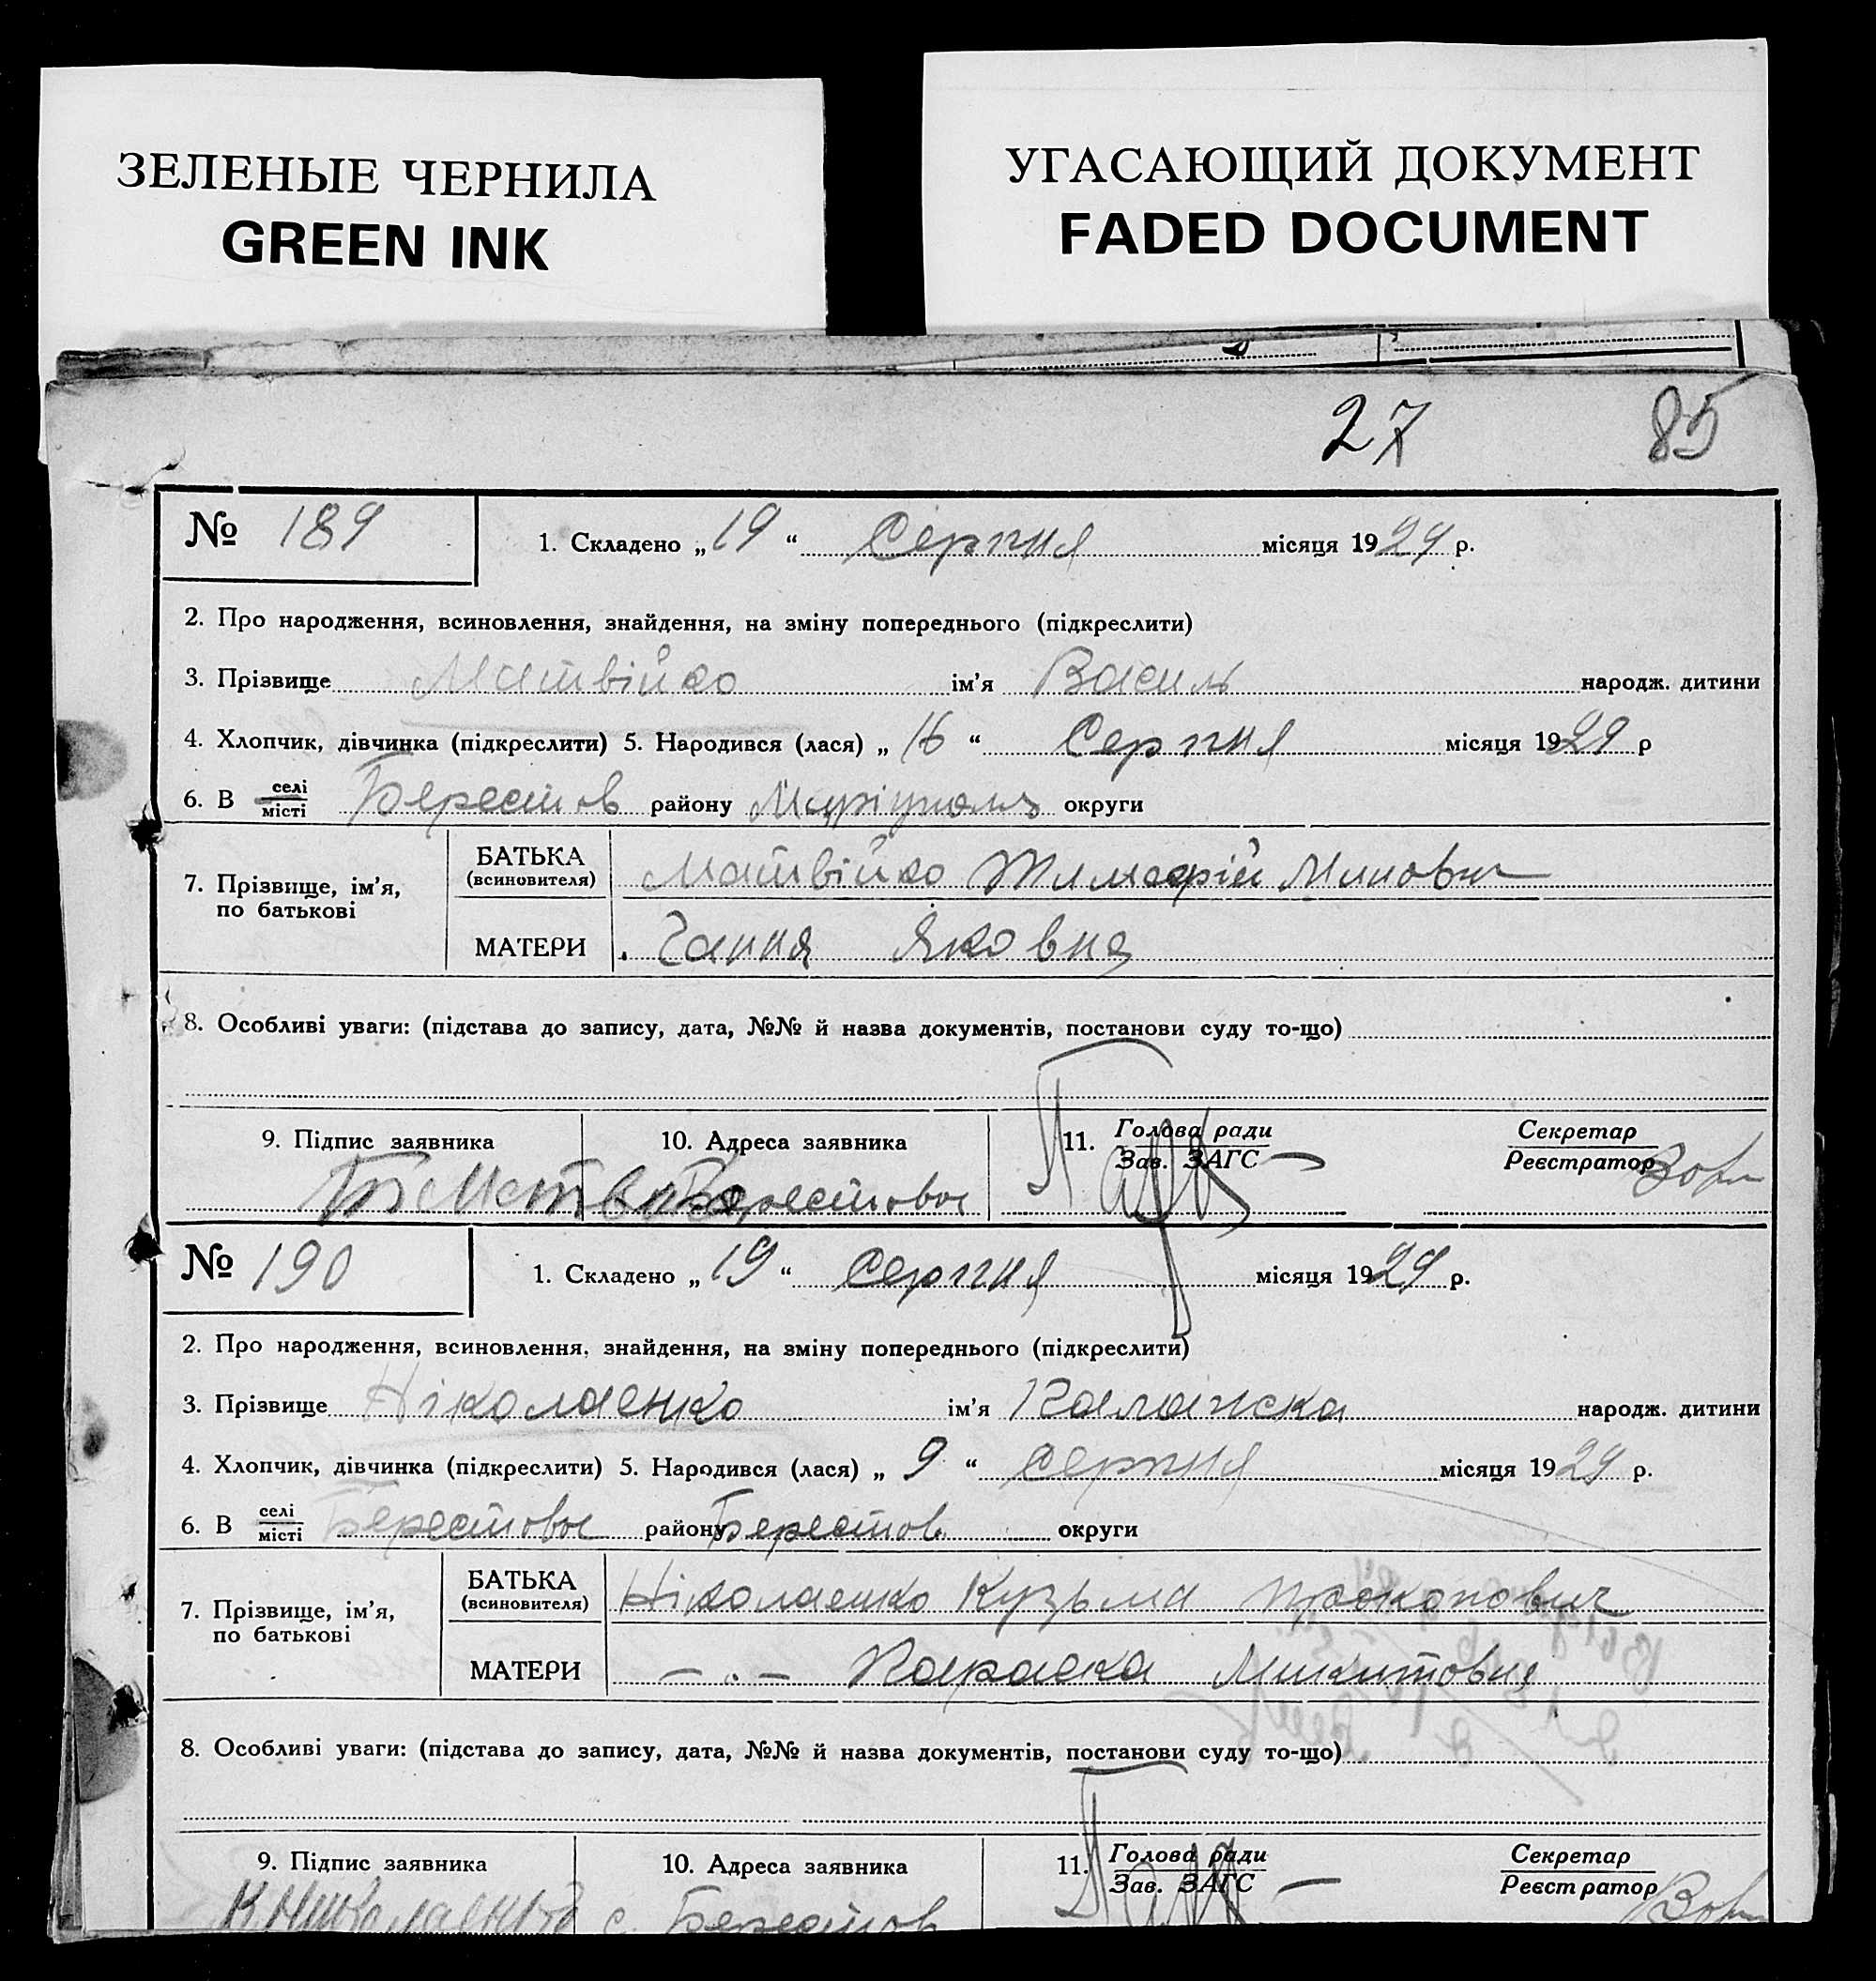 ЗЕЛЕНЫЕ ЧЕРНИЛА
GREEN INK
УГАСАЮЩИЙ ДОКУМЕНТ
FADED DOCUMENT
27 85
№ 189 1. Складено „ 19 “ Серпня місяця 1929 р.
2. Про народження, всиновлення, знайдення, на зміну попереднього (підкреслити)
3. Прізвище Матвійко ім’я Василь народж. дитини
4. Хлопчик, дівчинка (підкреслити) 5. Народився (лася) „ 16 “ Серпня місяця 1929 р
6. В селі місті Берестов району Маріупольс округи
7. Прізвище, ім’я, по батькові
БАТЬКА (всиновителя) Матвійко
МАТЕРИ Ганна Яковна
8. Особливі уваги: (підстава до запису, дата, №№ й назва документів, постанови суду то-що)
9. Підпис заявника 10. Адреса заявника 11. Голова ради Зав. ЗАГС Секретар Реєстратор
Берестовое
№ 190 1. Складено „ 19 “ серпня місяця 1929 р.
2. Про народження, всиновлення, знайдення, на зміну попереднього (підкреслити)
3. Прізвище Ніколаенко ім’я народж. дитини
4. Хлопчик, дівчинка (підкреслити) 5. Народився (лася) „ 9 “ серпня місяця 1929 р.
6. В селі місті Берестовое району Берестов округи
7. Прізвище, ім’я, по батькові
БАТЬКА (всиновителя) Ніколаенко Кузьма Прокопович
МАТЕРИ — „ — Параска Микитовна
8. Особливі уваги: (підстава до запису, дата, №№ й назва документів, постанови суду то-що)
9. Підпис заявника 10. Адреса заявника 11. Голова ради Зав. ЗАГС Секретар Реєстратор
с. Берестов